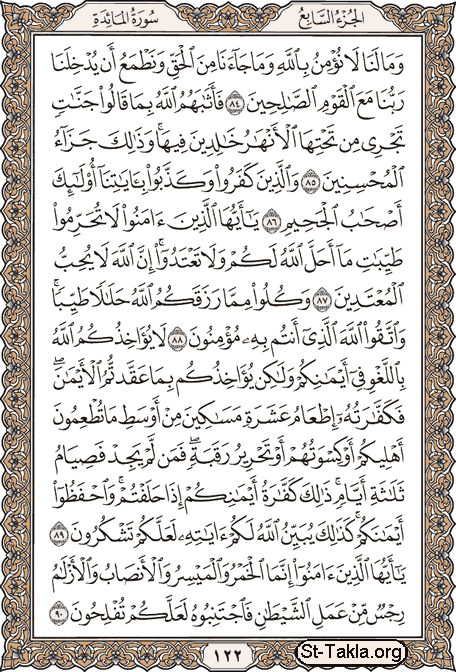 سُورَةُ المَائدَةِ الجُزءُ السَّابِعُ
وَمَا لَنَا لَا نُؤْمِنُ بِٱللَّهِ وَمَا جَآءَنَا مِنَ ٱلْحَقِّ وَنَطْمَعُ أَن يُدْخِلَنَا
رَبُّنَا مَعَ ٱلْقَوْمِ ٱلصَّٰلِحِينَ ٨٤ فَأَثَٰبَهُمُ ٱللَّهُ بِمَا قَالُوا۟ جَنَّٰتٍ
تَجْرِى مِن تَحْتِهَا ٱلْأَنْهَٰرُ خَٰلِدِينَ فِيهَا ۚ وَذَٰلِكَ جَزَآءُ
ٱلْمُحْسِنِينَ ٨٥ وَٱلَّذِينَ كَفَرُوا۟ وَكَذَّبُوا۟ بِـَٔايَٰتِنَآ أُو۟لَٰٓئِكَ
أَصْحَٰبُ ٱلْجَحِيمِ ٨٦ يَٰٓأَيُّهَا ٱلَّذِينَ ءَامَنُوا۟ لَا تُحَرِّمُوا۟
طَيِّبَٰتِ مَآ أَحَلَّ ٱللَّهُ لَكُمْ وَلَا تَعْتَدُوٓا۟ ۚ إِنَّ ٱللَّهَ لَا يُحِبُّ
ٱلْمُعْتَدِينَ ٨٧ وَكُلُوا۟ مِمَّا رَزَقَكُمُ ٱللَّهُ حَلَٰلًا طَيِّبًا ۚ
وَٱتَّقُوا۟ ٱللَّهَ ٱلَّذِىٓ أَنتُم بِهِۦ مُؤْمِنُونَ ٨٨ لَا يُؤَاخِذُكُمُ ٱللَّهُ
بِٱللَّغْوِ فِىٓ أَيْمَٰنِكُمْ وَلَٰكِن يُؤَاخِذُكُم بِمَا عَقَّدتُّمُ ٱلْأَيْمَٰنَ ۖ
فَكَفَّٰرَتُهُۥٓ إِطْعَامُ عَشَرَةِ مَسَٰكِينَ مِنْ أَوْسَطِ مَا تُطْعِمُونَ
أَهْلِيكُمْ أَوْ كِسْوَتُهُمْ أَوْ تَحْرِيرُ رَقَبَةٍ ۖ فَمَن لَّمْ يَجِدْ فَصِيَامُ
ثَلَٰثَةِ أَيَّامٍ ۚ ذَٰلِكَ كَفَّٰرَةُ أَيْمَٰنِكُمْ إِذَا حَلَفْتُمْ ۚ وَٱحْفَظُوٓا۟
أَيْمَٰنَكُمْ ۚ كَذَٰلِكَ يُبَيِّنُ ٱللَّهُ لَكُمْ ءَايَٰتِهِۦ لَعَلَّكُمْ تَشْكُرُونَ ٨٩
يَٰٓأَيُّهَا ٱلَّذِينَ ءَامَنُوٓا۟ إِنَّمَا ٱلْخَمْرُ وَٱلْمَيْسِرُ وَٱلْأَنصَابُ وَٱلْأَزْلَٰمُ
رِجْسٌ مِّنْ عَمَلِ ٱلشَّيْطَٰنِ فَٱجْتَنِبُوهُ لَعَلَّكُمْ تُفْلِحُونَ ٩٠
١٢٢
St-Takla.org